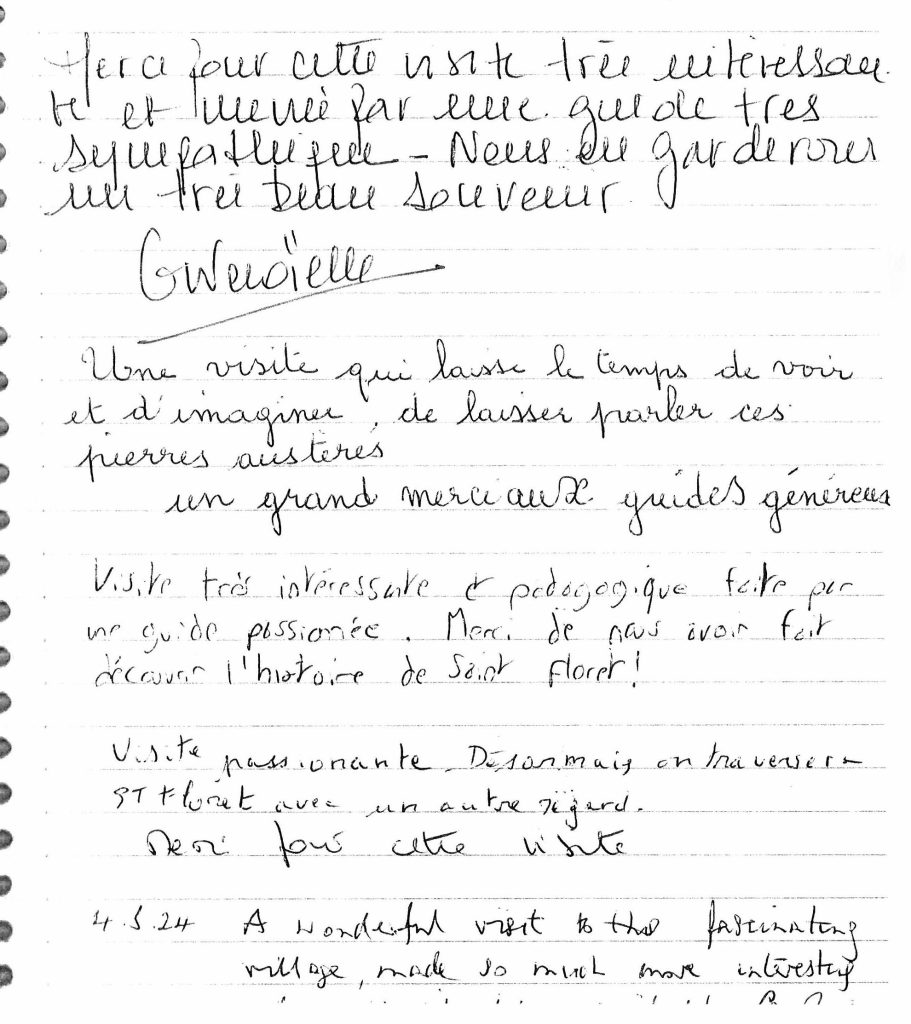 Merci pour cette visite très intéressan
te et menée par une guide très
sympathique - Nous en garderons
un très beau souvenir
Gwenaïelle
Une visite qui laisse le temps de voir
et d'imaginer, de laisser parler ces
pierres austères
un grand merci aux guides généreux
Visite très intéressante & pedagogique faite par
une guide passionnée. Merci de nous avoir fait
découvrir l'histoire de Saint Floret!
Visite passionante. Désormais on traversera
ST Floret avec un autre régard.
Merci pour cette visite
4.5.24 A wonderful visit to this fascinating
village, made so much more interesting